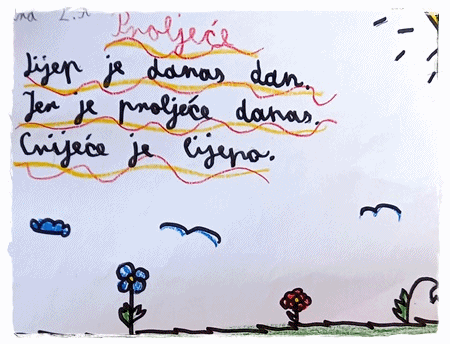 2.A
Proljeće
Lijep je danas dan.
Jer je proljeće danas.
Cvijeće je lijepo.